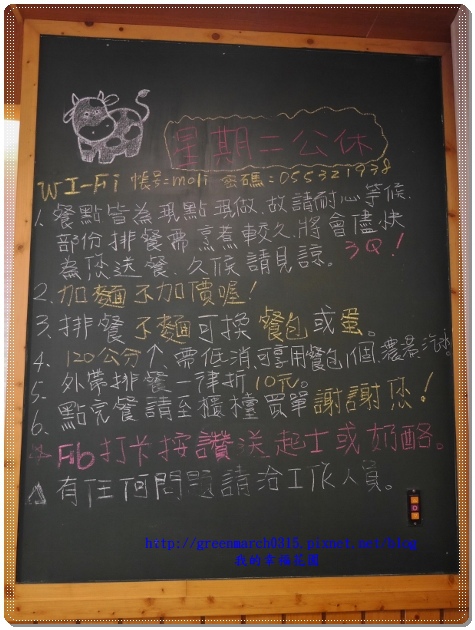 星期二公休
WI-Fi 帳號=moli 密碼=055321938
1. 餐點皆為現點現做.故請耐心等候.
部份排餐需烹煮較久.將會儘快
為您送餐.久候請見諒。3Q!
2. 加麵不加價喔!
3. 排餐子麵可換餐包或蛋。
4. 120公分↑需低消.可享用餐包1個.濃湯.汽水。
5. 外帶排餐一律折10元。
6. 點完餐請至櫃檯買單謝謝您!
Fb打卡按讚送起士或奶酪。
△有任何問題請洽工作人員。
http://greenmarch0315.pixnet.net/blog
我的幸福花園